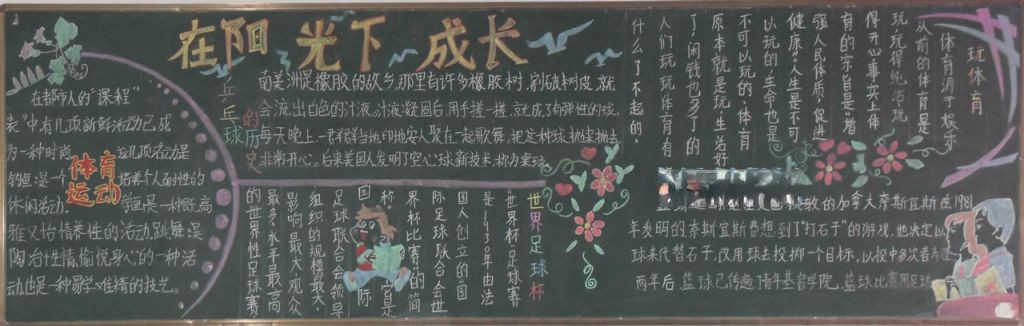 在阳光下成长
在都市人的“课程
表”中有几项新鲜活动已成
为一种时尚。
这几项活动是
体育运动
休闲活动.
雅又怡情养性的活动.跳舞是
陶冶性情愉悦身心的一种活
动也是一种易学难精的技艺。
乒乓球的历史
南美洲是橡胶的故乡,那里有许多橡胶树,割破树皮,就
会流出白色的汁液,汁液凝固后,用手搓一搓,就成了有弹性的球,
每天晚上一群群当地印地安人聚在一起歌舞,把这种球抛来抛去
非常开心。后来英国人发明了空心球新技术,称为乒球。
世界足球杯
“世界杯”足球赛
是1930年由法
国人创立的。国
际足球联合会世
界杯比赛的简
称.
它是
国
际
足球联合会领导
组织的规模最大,
影响最大,观众
最多,水平最高
的世界性足球赛
玩体育
体育源于娱乐
从前的体育是
玩,玩得电活,玩
得开心,事实上体
育的宗旨是“增
强人民体质,促进
健康”人生是不可
以玩的,生命也是
不可以玩的,体育
原本就是玩,生活好
了,闲钱也多了的
人们玩玩体育有
什么了不起的.
的加拿大奈斯宜斯在1981
年发明的.奈斯宜斯曾想到了“打石子”的游戏,他决定以
球来代替石子,仅用球去投掷一个目标,以投中多次者为
两年后,篮球已传遍
篮球比赛用足球